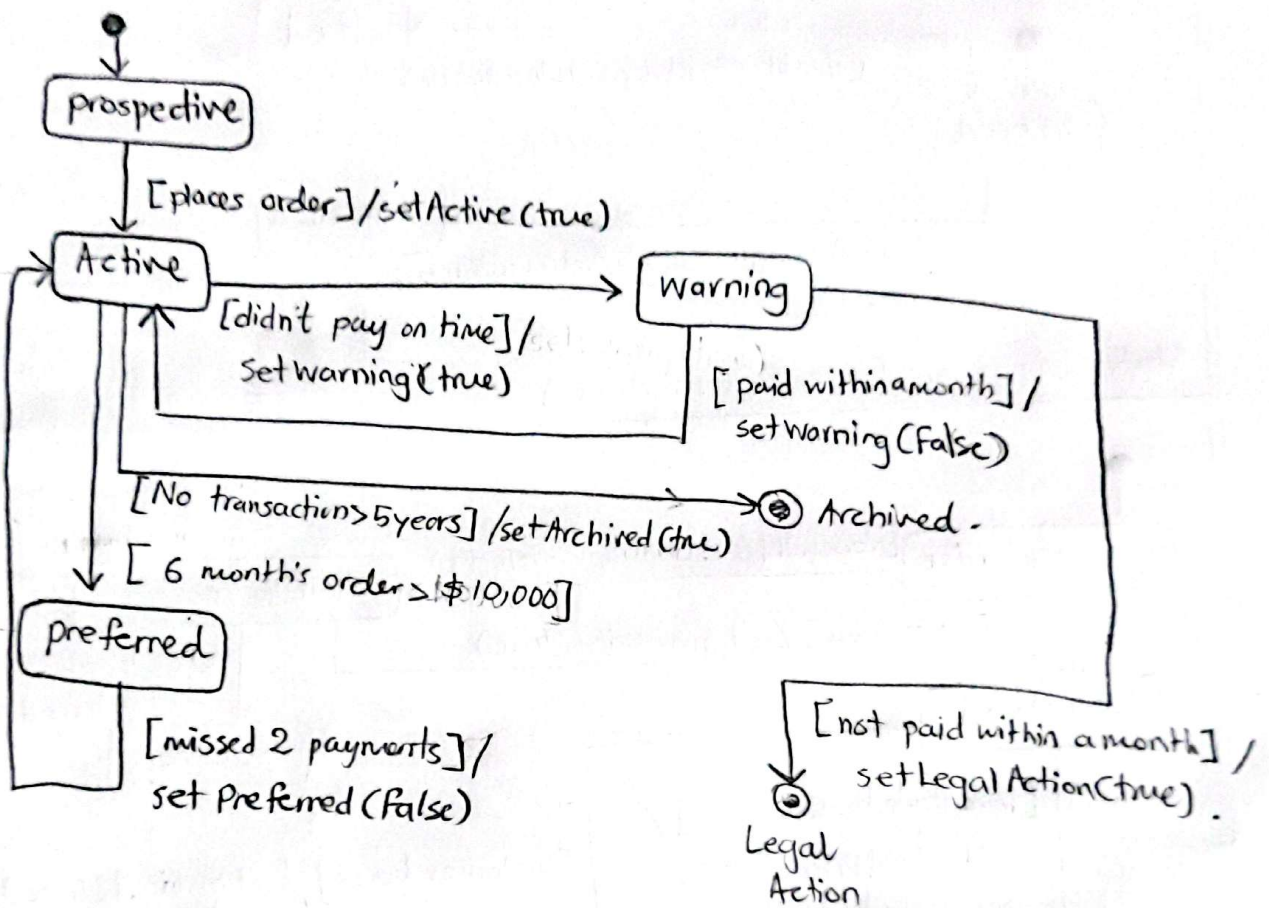 prospective
[places order]/setActive(true)
Active
Warning
[didn't pay on time]/
setwarning(true)
[paid within a month]/
setWarning(False)
[No transaction>5years]/setArchived(true)
Archived.
[ 6 month's order > $10,000]
preferred
[missed 2 payments]/
set Preferred(False)
[not paid within a month]/
setLegal Action(true).
Legal
Action